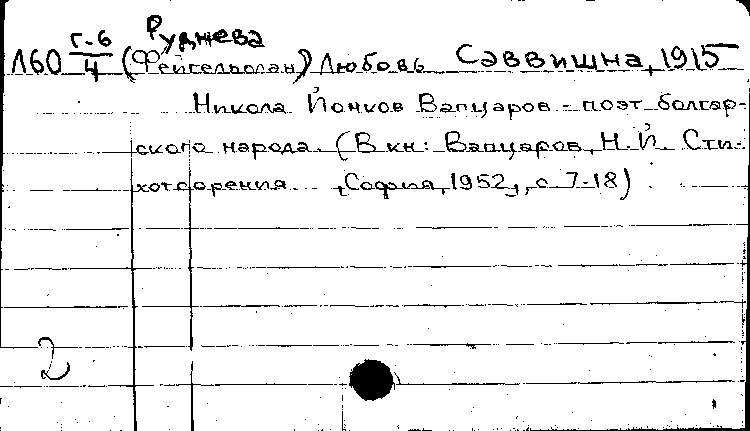 Руднева
Л60 г-6/4 (Фейгельман) Любовь Саввишна, 1915
Никола Йонков Вапцаров - поэт болгар-
ского народа. (В кн: Вапцаров, Н.Й. Сти-
хотворения... , София, 1952, , с. 7-18)
2